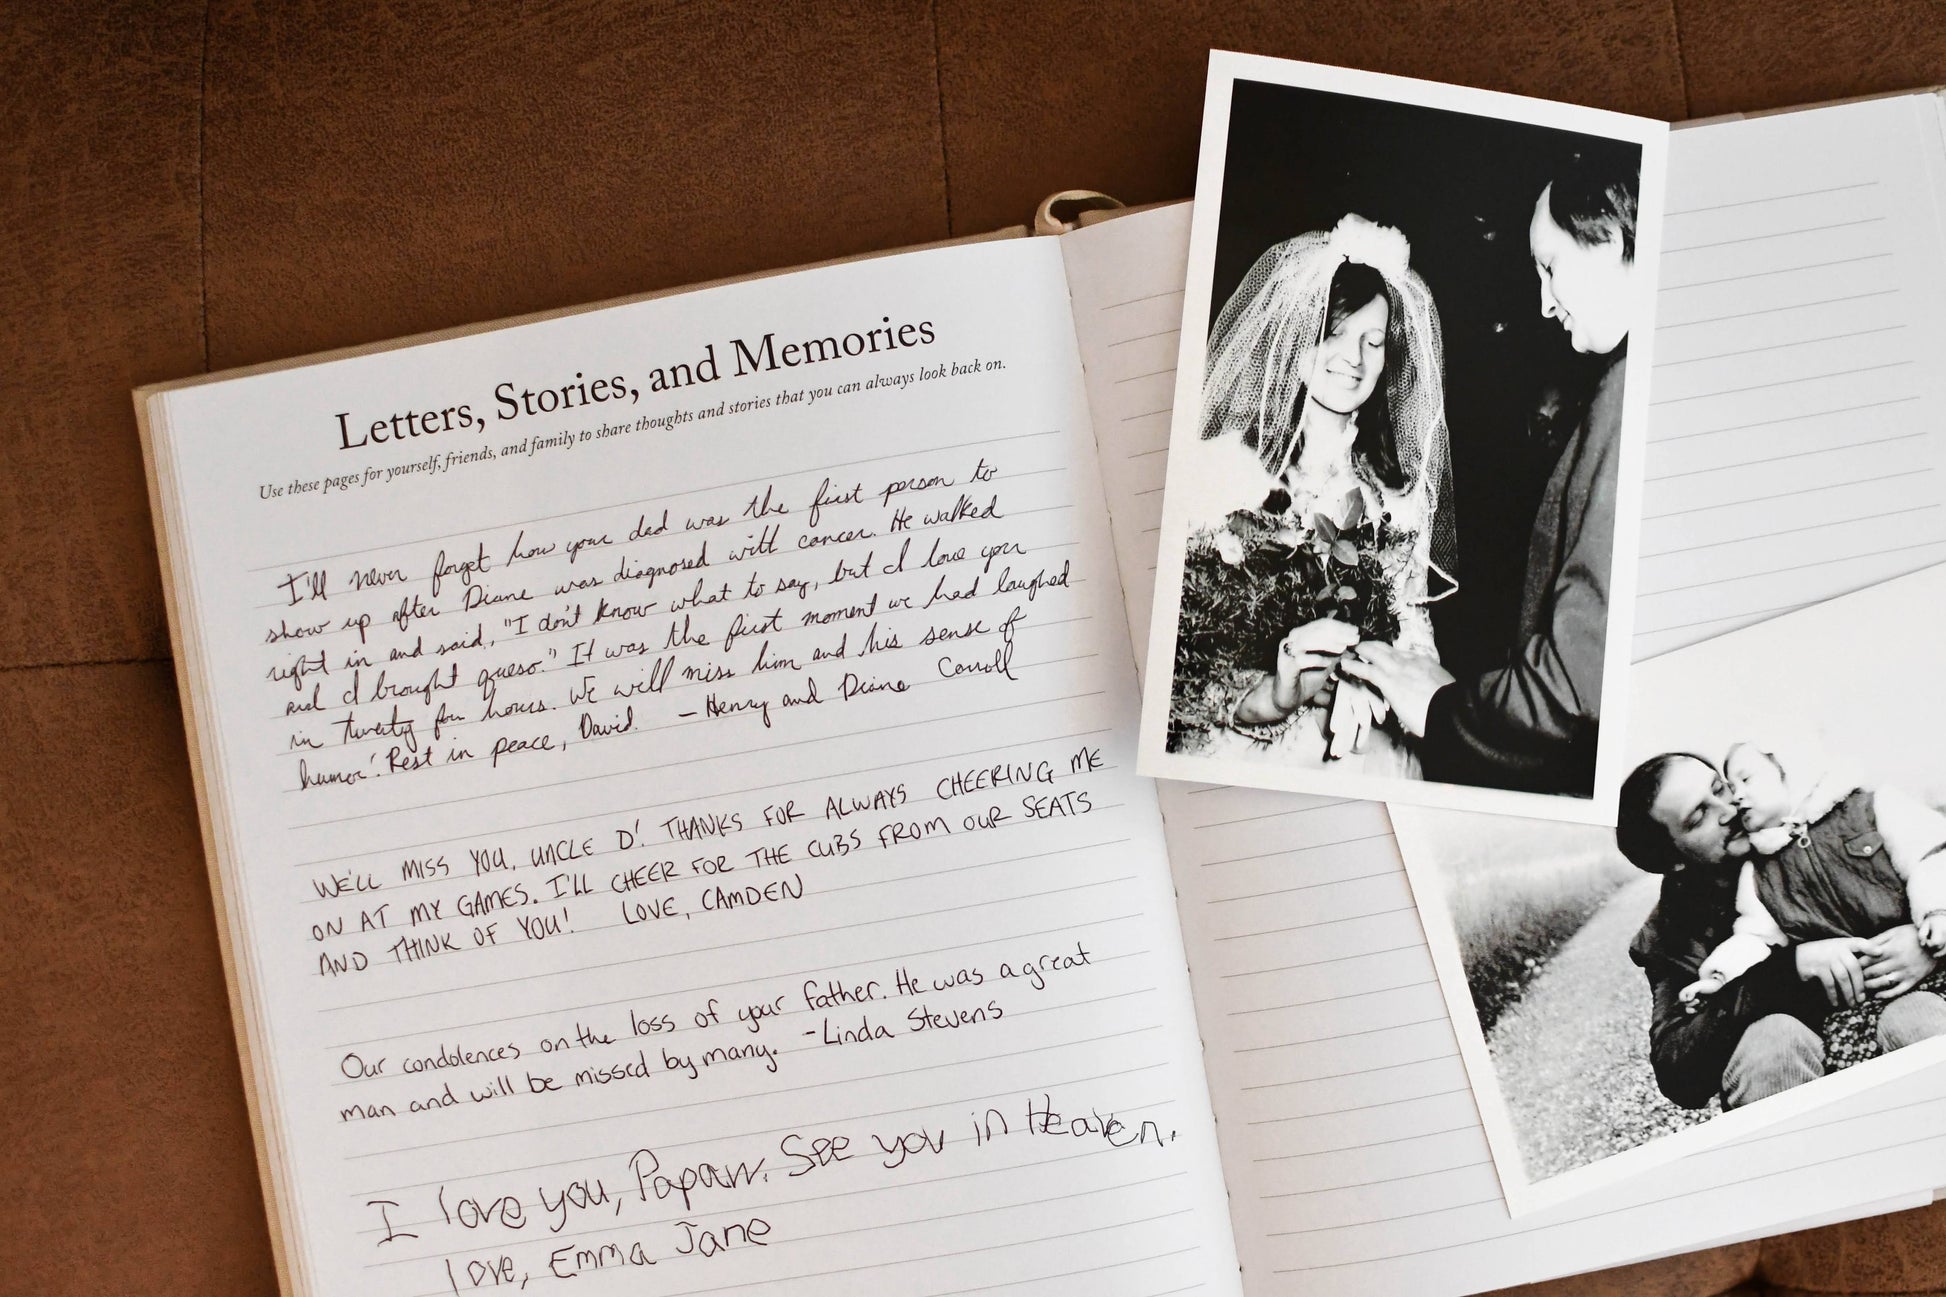 Letters, Stories, and Memories
Use these pages for yourself, friends, and family to share thoughts and stories that you can always look back on.
I'll never forget how your dad was the first person to
show up after Diane was diagnosed with cancer. He walked
right in and said, "I don't know what to say, but I love you
and I brought queso." It was the first moment we had laughed
in twenty four hours. We will miss him and his sense of
humor! Rest in peace, David. – Henry and Diane Carroll
WE'LL MISS YOU, UNCLE D! THANKS FOR ALWAYS CHEERING ME
ON AT MY GAMES. I'LL CHEER FOR THE CUBS FROM OUR SEATS
AND THINK OF YOU! LOVE, CAMDEN
Our condolences on the loss of your father. He was a great
man and will be missed by many. -Linda Stevens
I love you, Papaw. See you in Heaven.
love, Emma Jane